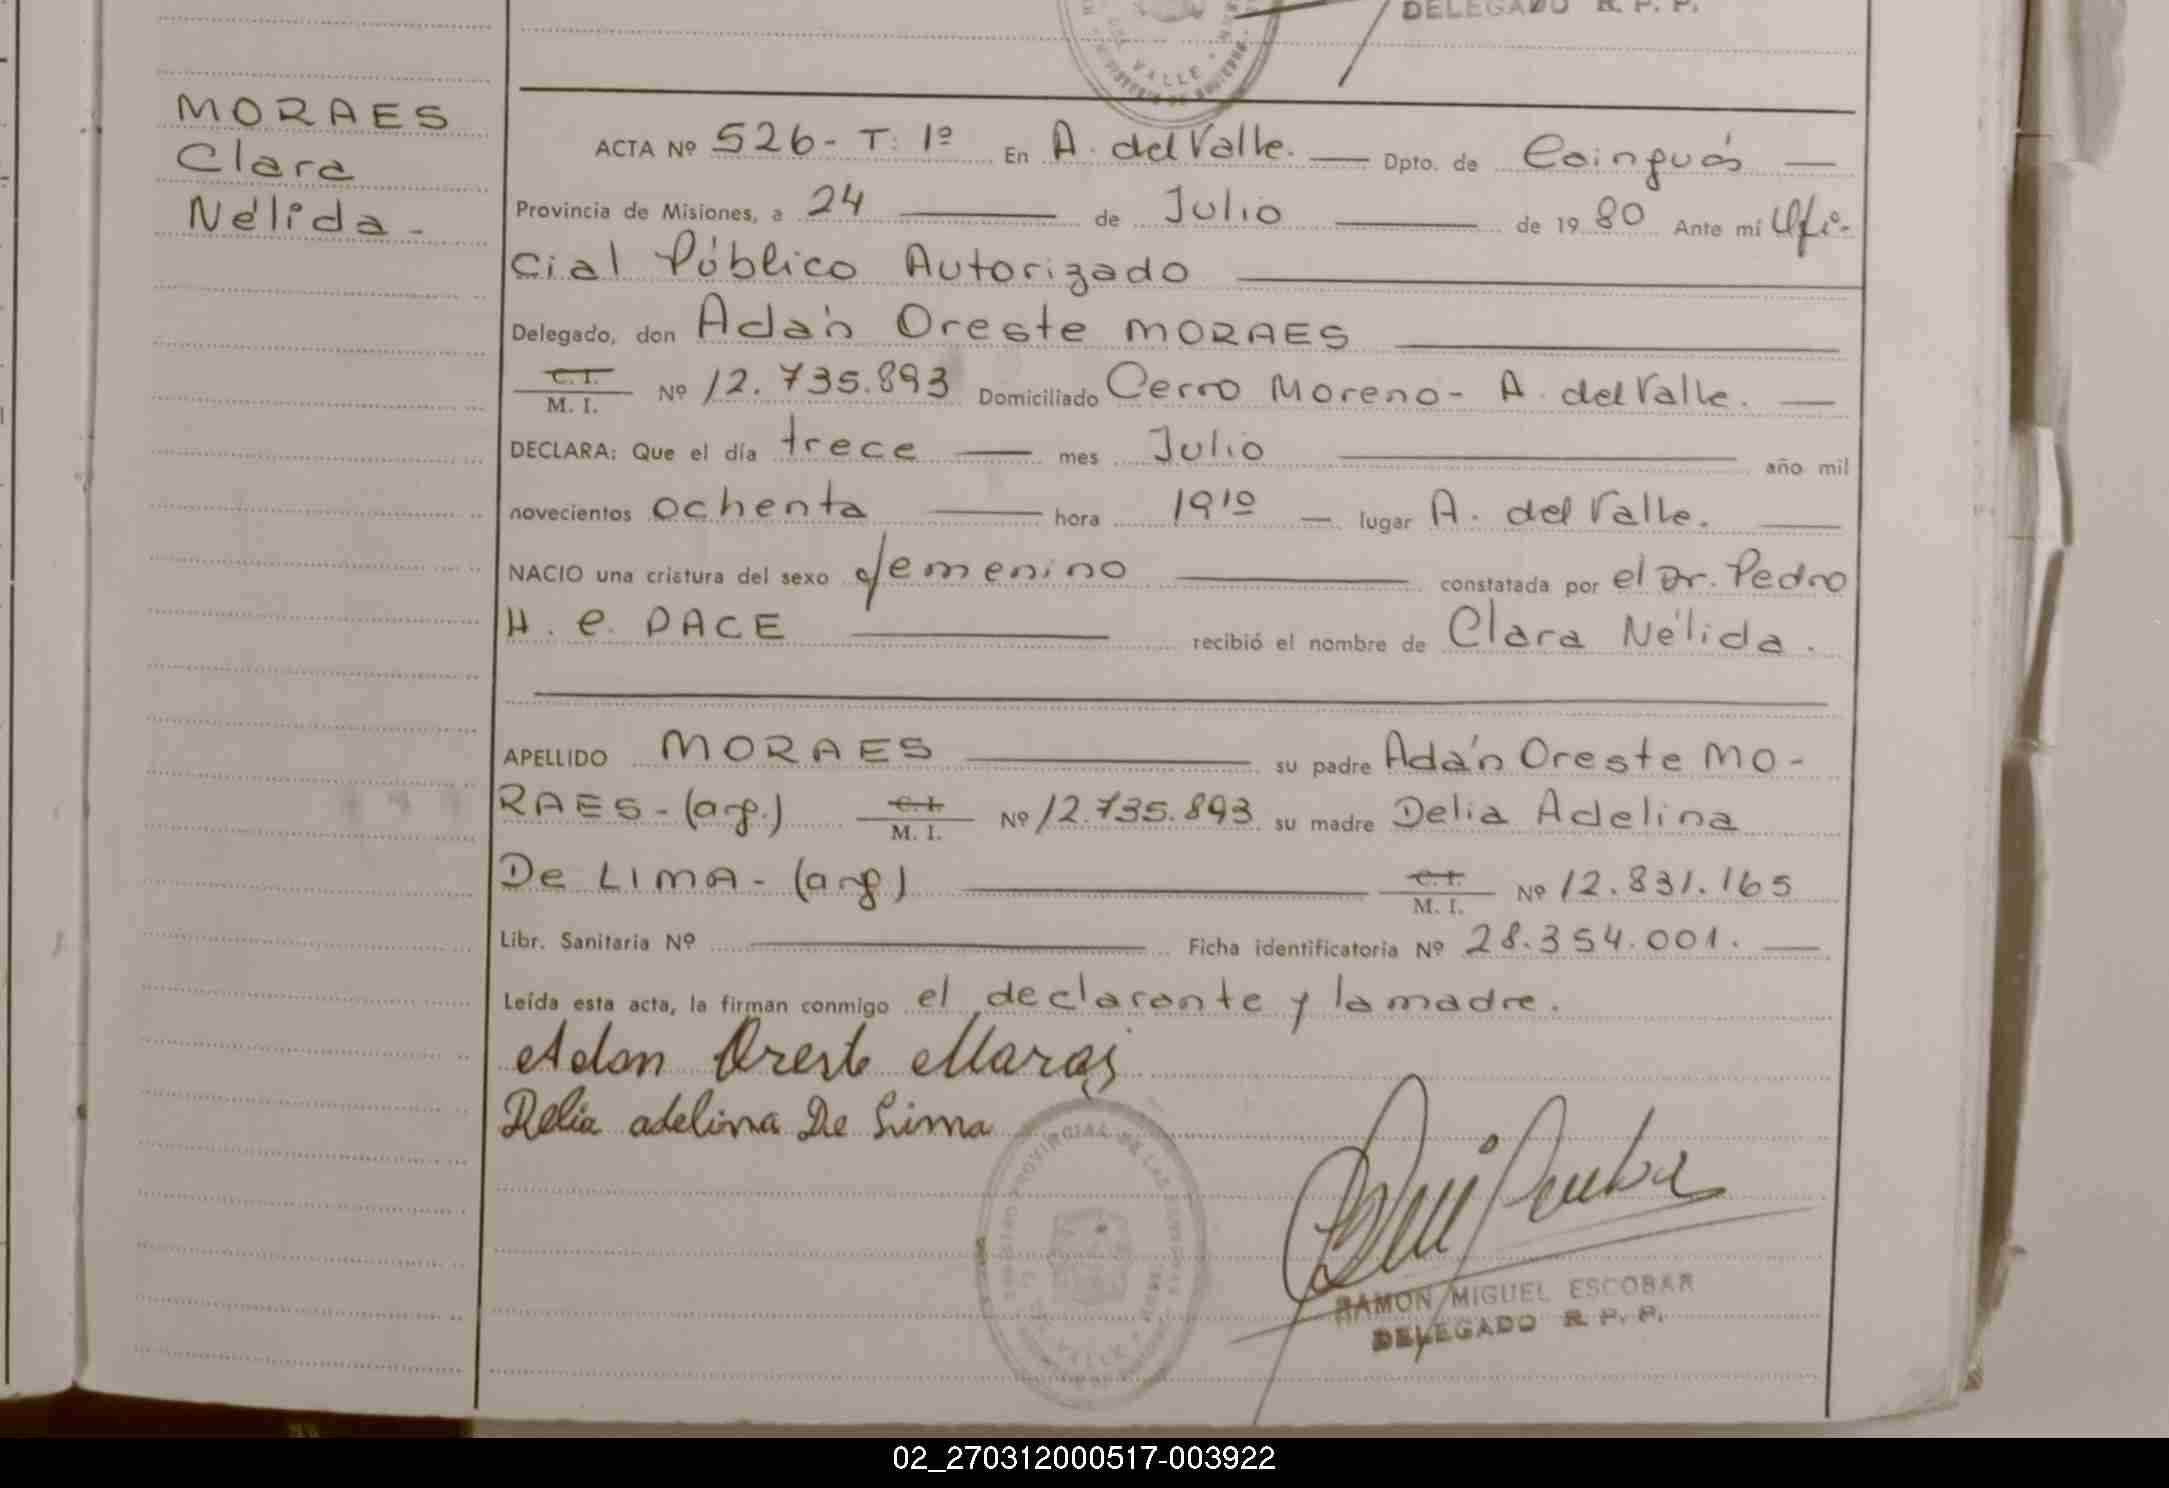 DELEGADO R. P. P.
VALLE
MORAES
Clara
Nélida.-
ACTA Nº 526- T: 1º En A. del Valle. Dpto. de Cainguás
Provincia de Misiones, a 24 de Julio de 1980 Ante mí Ofi-
cial Público Autorizado
Delegado, don Adán Oreste MORAES
C.I.
M. I. Nº 12.735.893 Domiciliado Cerro Moreno- A. del Valle.
DECLARA: Que el día trece mes Julio año mil
novecientos ochenta hora 19¹⁰ lugar A. del Valle.
NACIO una criatura del sexo femenino constatada por el Dr. Pedro
H. C. PACE recibió el nombre de Clara Nélida.
APELLIDO MORAES su padre Adán Oreste MO-
RAES-(arg.) C.I. M. I. Nº 12.735.893 su madre Delia Adelina
De LIMA-(arg) C.I. M. I. Nº 12.831.165
Libr. Sanitaria Nº Ficha identificatoria Nº 28.354.001.
Leída esta acta, la firman conmigo el declarante y la madre.
Adan Oreste Moraes
Delia adelina De Lima
RAMON MIGUEL ESCOBAR
DELEGADO R. P. P.
02_270312000517-003922